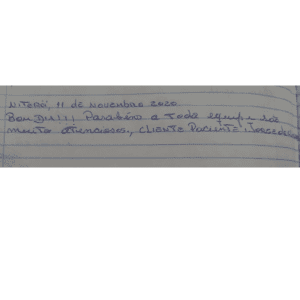 NITERÓI, 11 de NOVEMBRO 2020
Bom DIA!!! Parabéns a Toda equipe
muito atenciosa, CLIENTE PACIENTE: